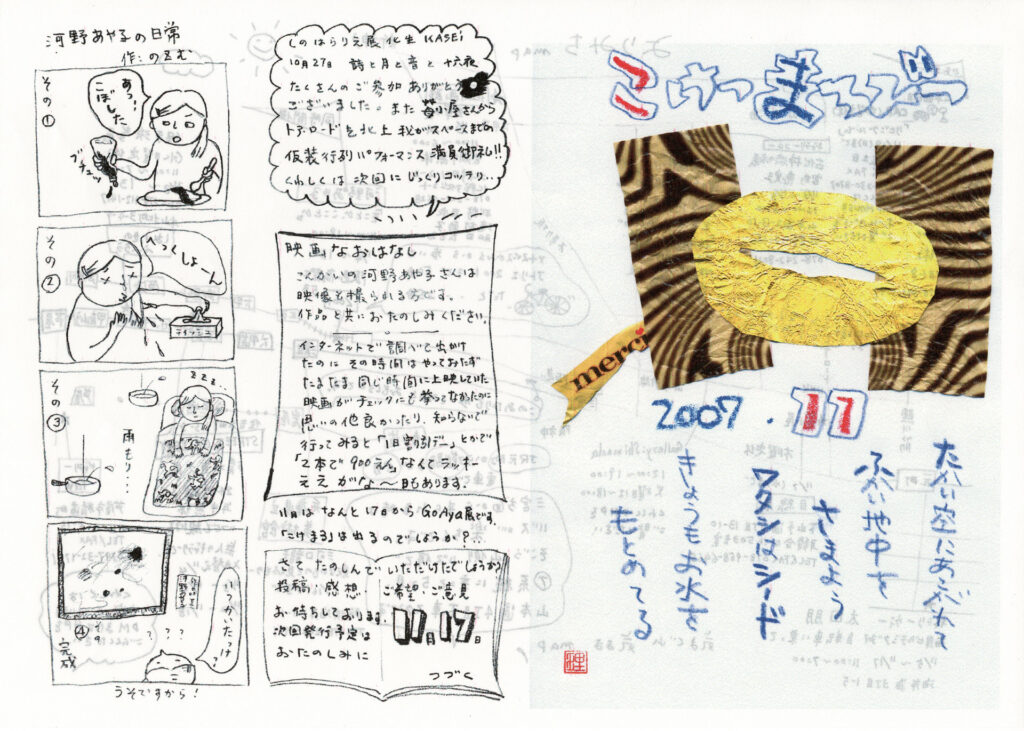 河野あや子の日常
作:のえむ
その①
あっ、
こぼした
ブチュッ
その②
へっくしょーん
ティッシュ
その③
zzz..
雨もり…
④
完成
いつかいたっけ?
? ? ?
うそですから!
しのはらりえ展 化生 KASEi
10月27日 詩と月と音と十六夜
たくさんのご参加ありがとう
ございました。また 苺小屋さんから
トアロードを北上 私がスペースまでの
仮装行列パフォーマンス 満員御礼!!
くわしくは次回にじっくりコッテリ..
映画なおはなし
こんかいの河野あや子さんは
映像も撮られる方です。
作品と共におたのしみください。
インターネットで調べて出かけ
たのに その時間はやっておらず
たまたま同じ時間に上映していた
映画がチェックにも参ってなかったのに
思いの他良かったり、知らないで
行ってみると「1日割引デー」とかで
「2本で900えん」なんてラッキー
ええがな〜日もあります。
11月はなんと17日からGoAya展です。
「こけまる」は出るのでしょうか?..
さて、たのしんでいただけたでしょうか
投稿・感想・ご希望・ご意見
お待ちしております。
次回発行予定は
11月17日
おたのしみに
つづく
こけっまってびー
merci
2007.11
たかい空にあこがれて
ふかい地中を
さまよう
ワタシはシード
きょうもお水を
もとめてる